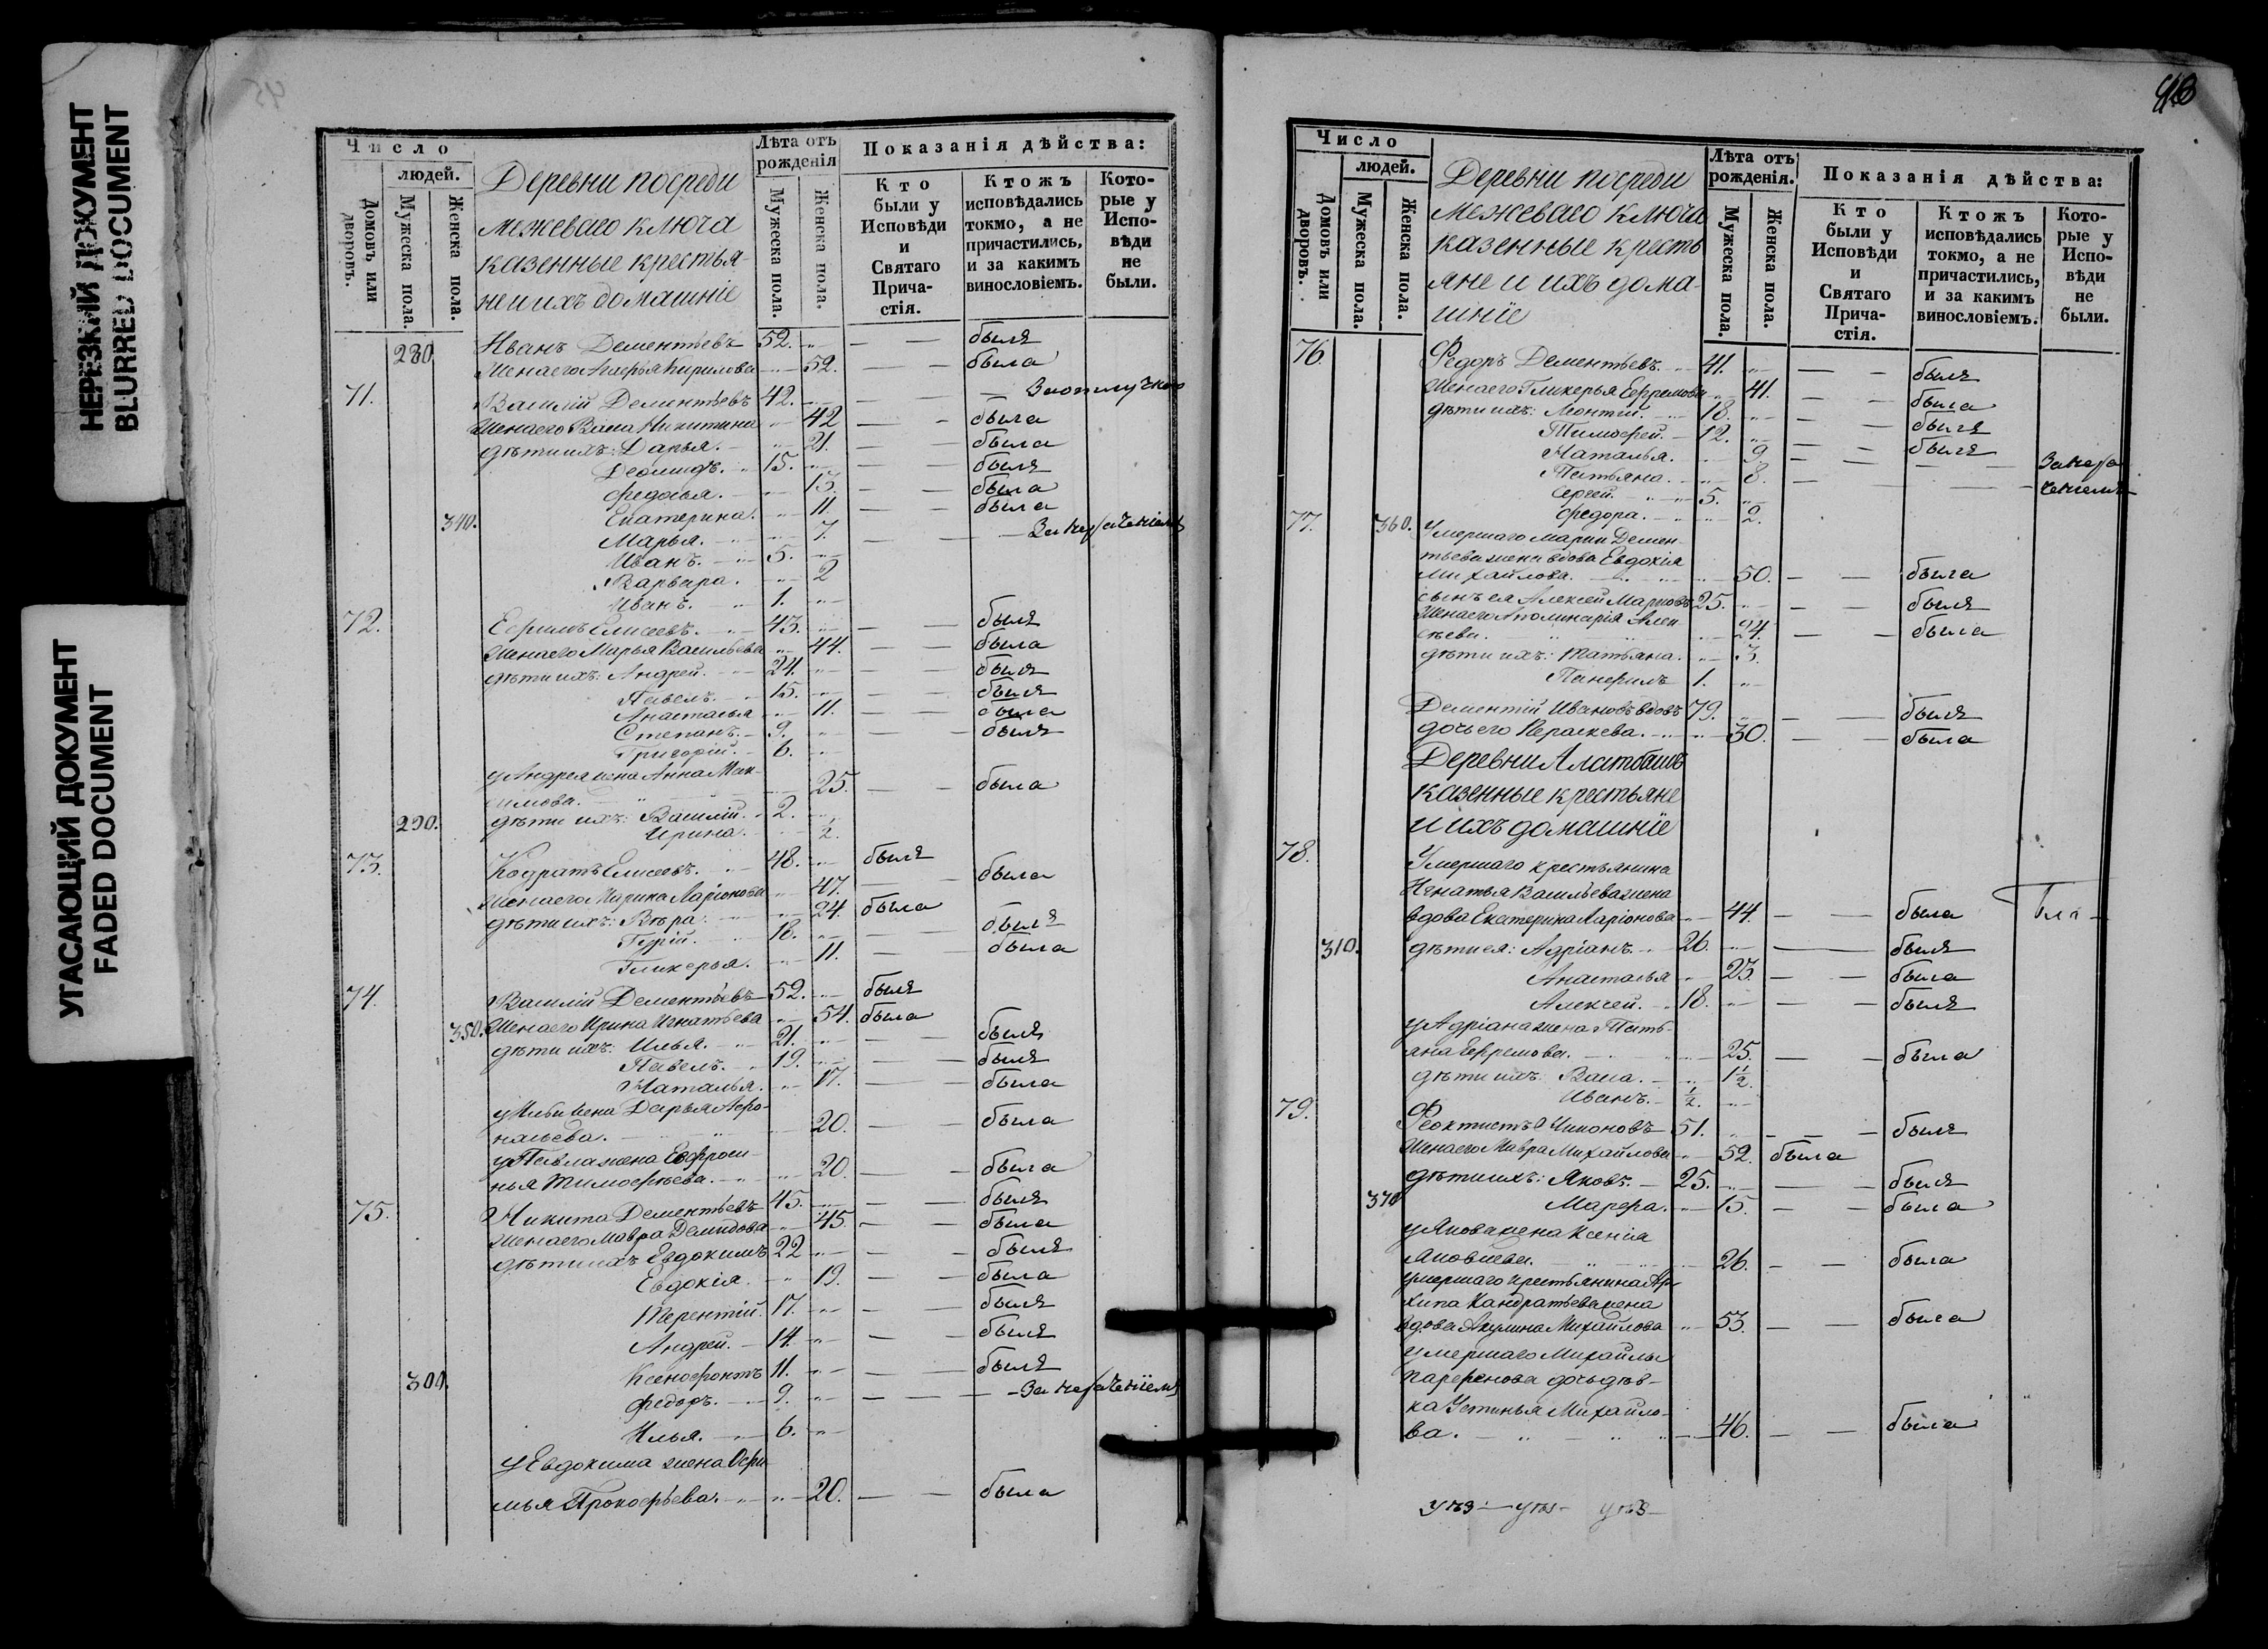 НЕРЕЗКИЙ ДОКУМЕНТ
BLURRED DOCUMENT
УГАСАЮЩИЙ ДОКУМЕНТ
FADED DOCUMENT
Число
людей.
Домовъ или дворовъ.
Мужеска пола.
Женска пола.
Деревни посреди
межеваго ключа
казенные крестья-
не и ихъ домашніе
Лѣта отъ рожденія
Мужеска пола.
Женска пола.
Показанія дѣйства:
Кто были у Исповѣди и Святаго Причастія.
Ктожъ исповѣдались токмо, а не причастились, и за какимъ винословіемъ.
Которые у Исповѣди не были.
280 Иванъ Дементьевъ 52. " — — былъ
Жена его Кирилова " 52. — — была
71. Василій Дементьевъ 42. " — — За отлучкою
Жена его Васа Никитина " 42 — — была
дѣти ихъ: Дарья. " 21. — — была
Деомидъ. 15. " — — былъ
Федосья. " 13. — — была
Екатерина. " 11. — — была
340. Марья. " 7. — — За
Иванъ. 5. "
Варвара. " 2
Иванъ. 1. "
72. Ефримъ Елисеевъ. 43. " — — былъ
Жена его Марья Васильева " 44. — — была
дѣти ихъ: Андрей. 24. " — — былъ
Павелъ. 15. " — — былъ
Анастасья " 11. — — была
Степанъ. 9. " — — былъ
Григорій. 6. "
у Андрея жена Анна Мак-
симова. " 25. — — была
290. дѣти ихъ: Василій. 2. "
Ирина. " 2.
73. Кодратъ Елисеевъ. 48. " былъ
Жена его Ирина Ларіонова " 47. — — была
дѣти ихъ: Вѣра. " 24. была —
Гурій. 18. " — — былъ
Гликерья. " 11. — — была
74. Василій Дементьевъ 52. " былъ
350. Жена его Ирина Игнатьева " 54. была
дѣти ихъ: Илья. 21. " — — былъ
Павелъ. 19. " — — былъ
Наталья. " 17. — — была
у Ильи жена Дарья Афо-
насьева. " 20. — — была
у Павла жена Евфроси-
нья Тимофѣева. " 20. — — была
75. Никита Дементьевъ 45. " — — былъ
Жена его Мавра Демидова " 45. — — была
дѣти ихъ Евдокимъ 22 " — — былъ
Евдокія. " 19. — — была
Терентій. 17. " — — былъ
Андрей. 14. " — — былъ
Ксенофонтъ 11. " — — былъ
300. Федоръ. 9. " — — За
Илья. 6. "
у Евдокима жена Офи-
мья Прокофьева. " 20. — — была
Число
людей.
Домовъ или дворовъ.
Мужеска пола.
Женска пола.
Деревни посреди
межеваго ключа
казенные кресть
яне и ихъ дома-
шніе
Лѣта отъ рожденія.
Мужеска пола.
Женска пола.
Показанія дѣйства:
Кто были у Исповѣди и Святаго Причастія.
Ктожъ исповѣдались токмо, а не причастились, и за какимъ винословіемъ.
Которые у Исповѣди не были.
76. Федоръ Дементьевъ. 41. " — — былъ
Жена его Гликерья Ефремова " 41. — — была
дѣти ихъ: Леонтій. 18. " — — былъ
Тимофей. 12. " — — былъ
Наталья. " 9. — —
Татьяна. " 8. — —
Сергей. 5. "
Федора. " 2.
77. 360. Умершаго Марки Демен-
тьева жена вдова Евдокія
Михайлова. " 50. — — была
сынъ ея Алексей Марковъ 25. " — — былъ
Жена его Аполинарія Алек-
сѣева. " 24. — — была
дѣти ихъ: Татьяна. " 3.
Панфилъ 1. "
Дементій Ивановъ вдовъ 79. " — — былъ
дочь его Параскева. " 30. — — была
Деревни
казенные крестьяне
и ихъ домашніе
78. Умершаго крестьянина
Игнатья Васильева жена
вдова Екатерина Ларіонова " 44. — — была
310. дѣти ея: Адріанъ. 26. " — — былъ
Анастасья " 23 — — была
Алексей. 18. " — — былъ
у Адріана жена Тать-
яна Ефремова. " 25. — — была
дѣти ихъ: Васа. " 1½.
Иванъ. ½. "
79. Феоктистъ 51. " — — былъ
Жена его Мавра Михайлова " 52. была
дѣти ихъ: Яковъ. 25. " — — былъ
370 Марфа. " 15. — — была
у Якова жена Ксенія
Яковлева. " 26. — — была
умершаго крестьянина Ар-
хипа Кандратьева жена
вдова Акулина Михайлова " 53. — — была
умершаго Михайлы
Парфенова дочь дѣв-
ка Устинья Михайло-
ва. " 46. — — была